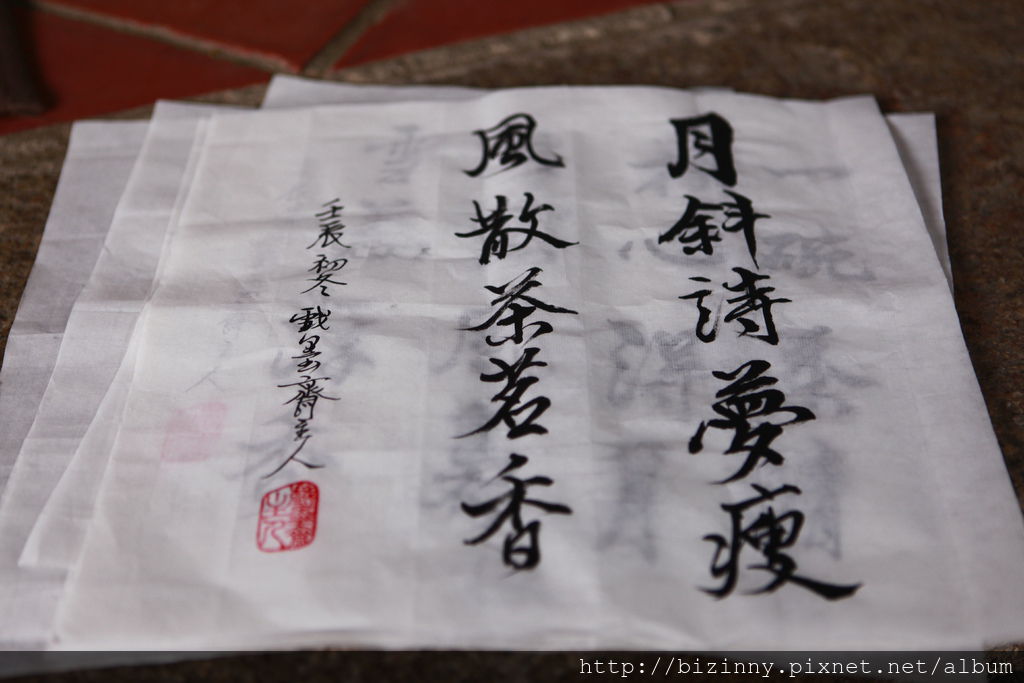 月斜詩夢瘦
風散茶茗香
壬辰初冬戲墨齋主人
http://bizinny.pixnet.net/album